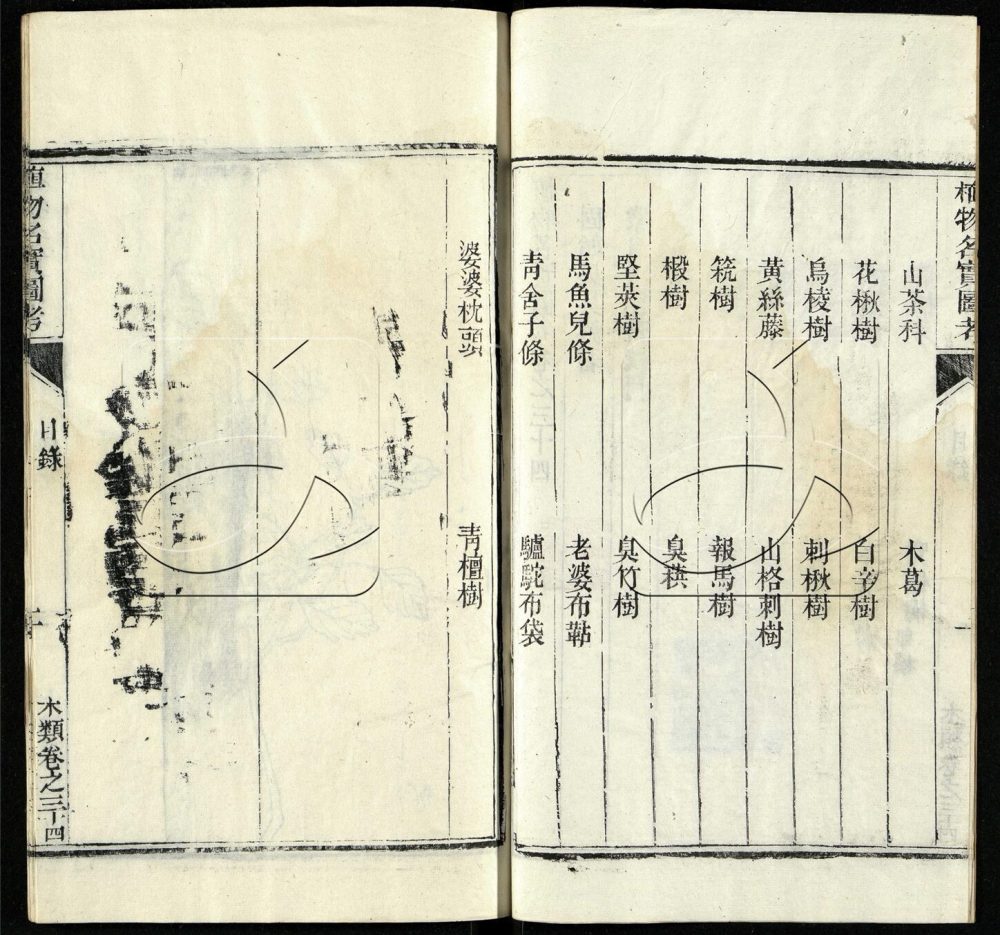 植物名實圖考
山茶科 木葛
花楸樹 白辛樹
烏棱樹 刺楸樹
黃絲藤 山格刺樹
筦樹 報馬樹
椴樹 臭䕨
堅莢樹 臭竹樹
馬魚兒條 老婆布鞊
青舍子條 驢駝布袋
婆婆枕頭 青檀樹
植物名實圖考
目錄
二
木類卷之三十四